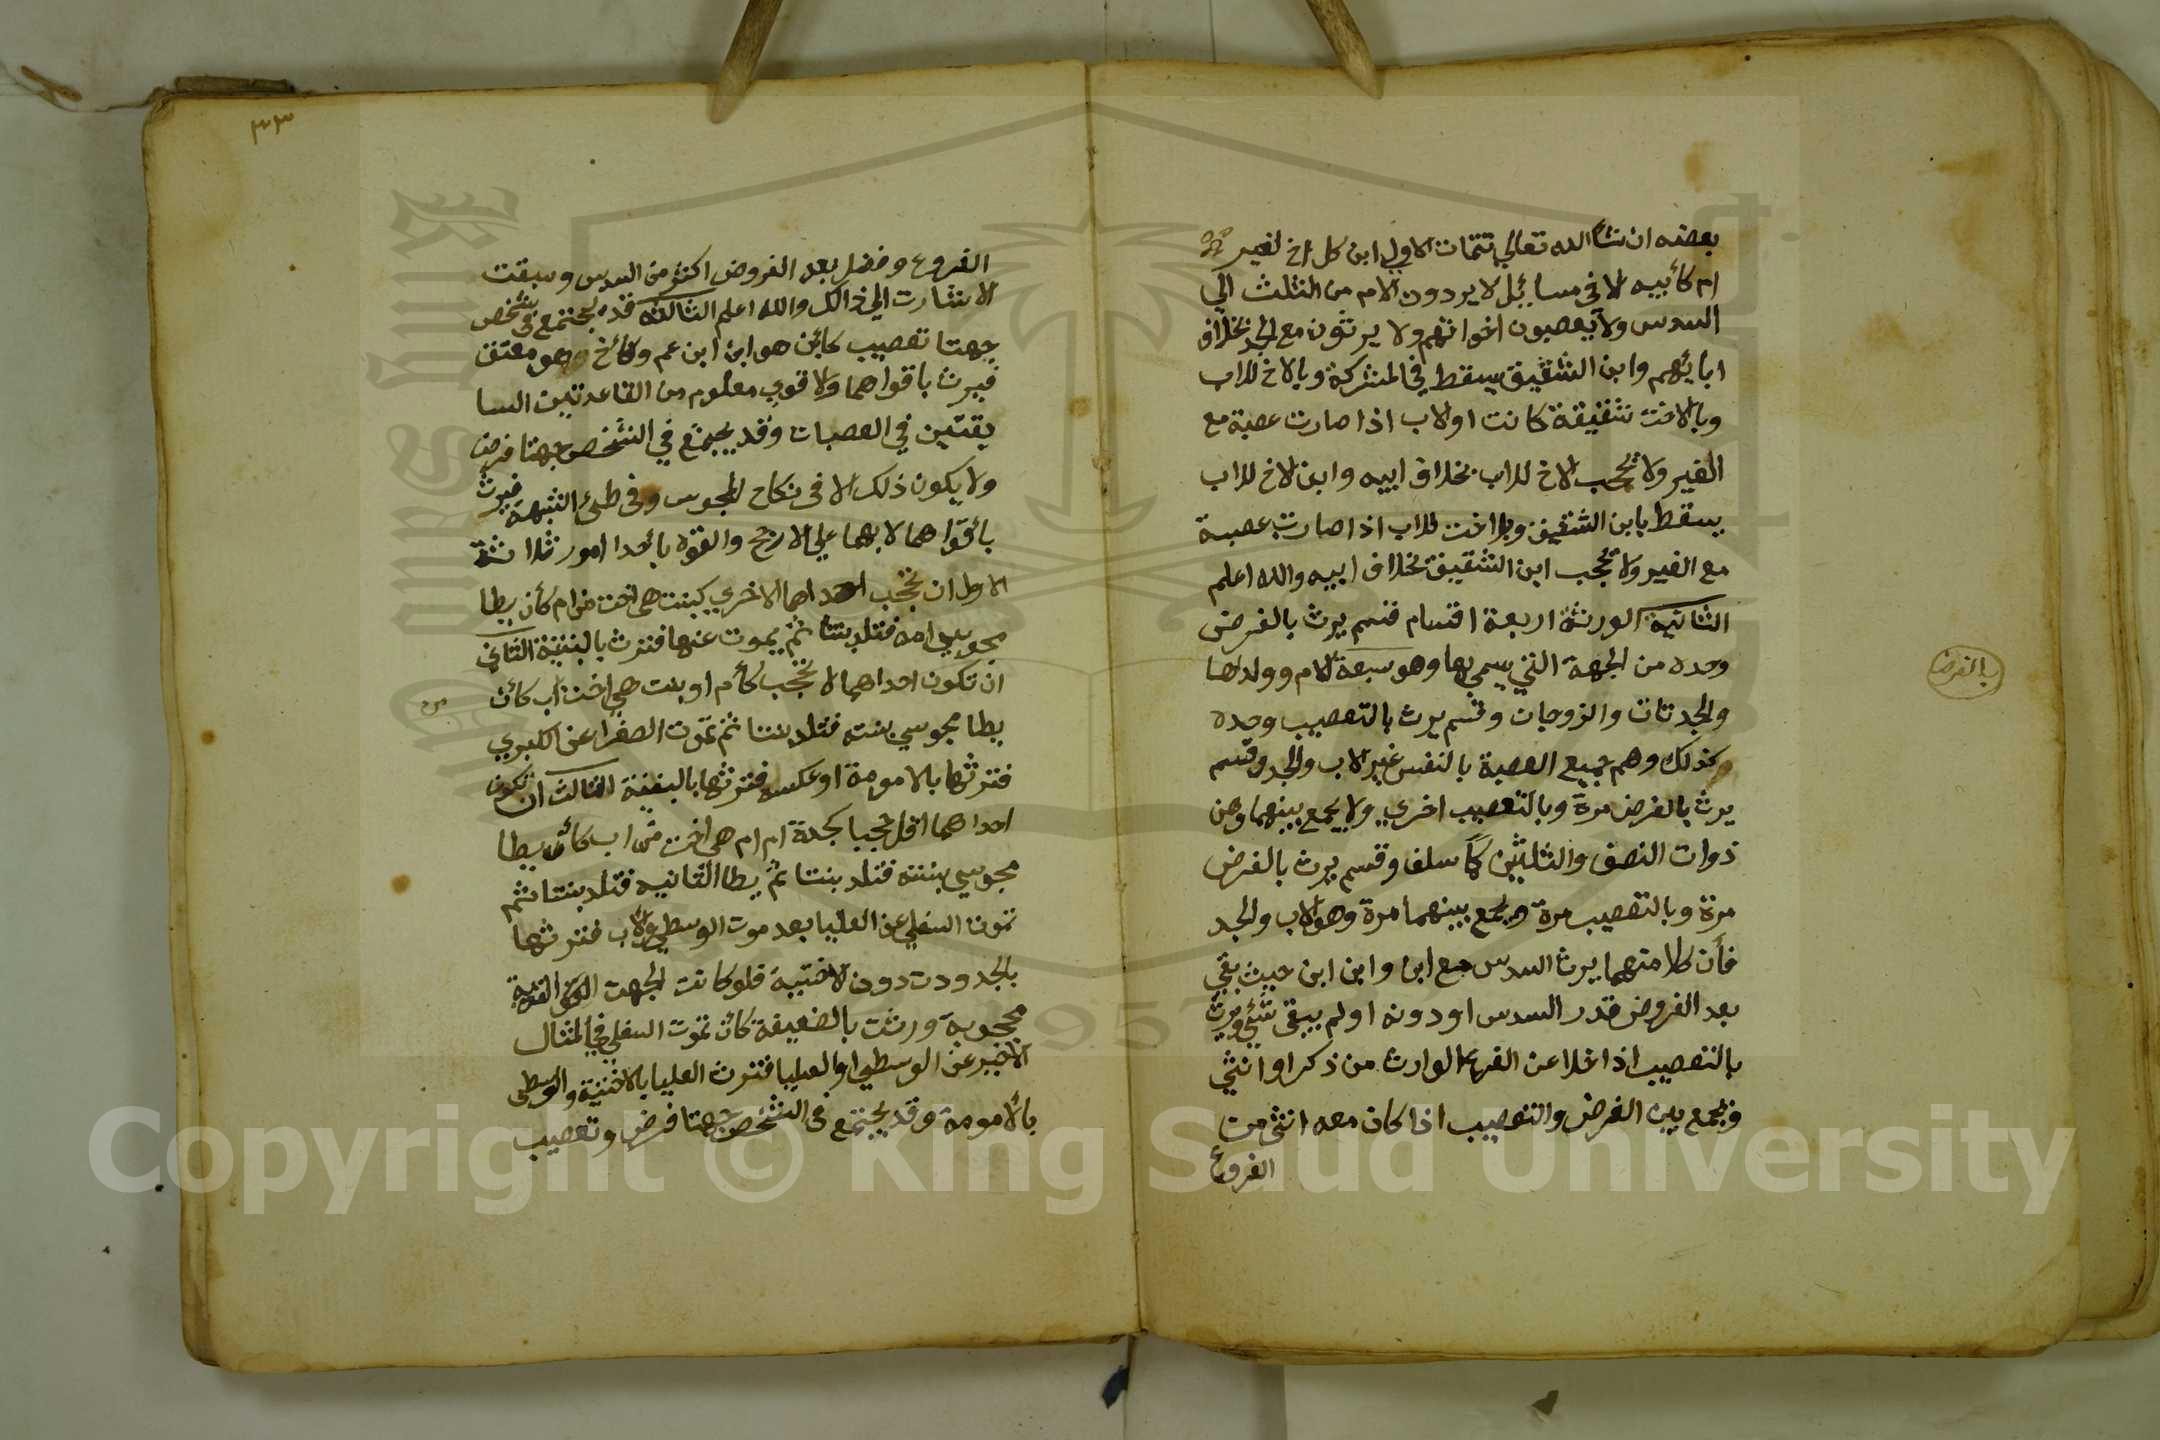 بعضه ان شآ الله تعالي تتمات الاولي ابن كل اخ لغير
ام كأبيه الا في مسائيل لا يردون الام من الثلث الي
السدس ولا يعصبون اخواتهم ولا يرثون مع الجد بخلاف
ابائهم وابن الشقيق يسقط في المشركة وبالاخ للاب
وبالاخت شقيقة كانت او لاب اذا صارت عصبة مع
الغير ولا تحجب الاخ للاب بخلاف ابيه وابن الاخ للاب
يسقط بابن الشقيق وبالاخت للاب اذا صارت عصبة
مع الغير ولا تحجب ابن الشقيق بخلاف ابيه والله اعلم
الثانية الورثة اربعة اقسام قسم يرث بالفرض
وحده من الجهة التي يسمي بها وهو سبعة الام وولداها
والجدتان والزوجان وقسم يرث بالتعصيب وحده
كذلك وهم جميع العصبة بالنفس غير الاب والجد وقسم
يرث بالفرض مرة وبالتعصيب اخري ولا يجمع بينهما وهن
ذوات النصف والثلثين كما سلف وقسم يرث بالفرض
مرة وبالتعصيب مرة ويجمع بينهما مرة وهو الاب والجد
فأن كلا منهما يرث السدس مع ابن وابن ابن حيث بقي
بعد الفروض قدر السدس او دونه او لم يبقي شئ ويرث
بالتعصيب اذا خلا عن الفرع الوارث من ذكر او انثي
ويجمع بين الفرض والتعصيب اذا كان معه انثي من
الفروع
بالفرض
٣٣
الفروع وفضل بعد الفروض اكثر من السدس وسبقت
الاشارت الي ذالك والله اعلم الثالثه قد يجتمع في شخص
جهتا تعصيب كأبن هو ابن ابن عم وكأخ هو معتق
فيرث باقواهما والاقوي معلوم من القاعدتين السا
بقتين في العصبات وقد يجتمع في الشخص جهتا فرض
ولا يكون ذلك الا في نكاح المجوس وفي طئ الشبهة فيرث
بأقواهما لا بهما علي الارجح والقوه بأحدا امور ثلاثة
الاول ان تحجب احداهما الاخري كبنت هي اخت من ام كأن يطا
مجوسي امه فتلد بنتا ثم يموت عنها فترث بالبنتية الثاني
ان تكون احداهما لا تحجب كأم او بنت هي اخت اب كأن
يطا مجوسي بنته فتلد بنتا ثم تموت الصغرا عن الكبري
فترثها بالامومة او عكسه فترثها بالبنتية الثالث ان تكون
احداهما اقل حجبا كجدة ام ام هي اخت من اب كأن يطا
مجوسي بنته فتلد بنتا ثم يطا الثانيه فتلد بنتا ثم
تموت السفلي عن العليا بعد موت الوسطي والاب فترثها
بالجدودت دون الاختية فلو كانت الجهت القويه
محجوبة ورثت بالضعيفة كأن تموت السفلي في المثال
الاخير عن الوسطي والعليا فترث العليا بالاختية والوسطي
بالأمومة وقد يجتمع في الشخص جهتا فرض وتعصيب
Copyright © King Saud University
1957